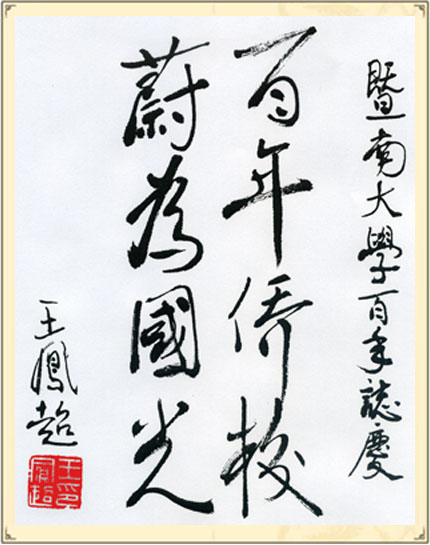 暨南大學百年誌慶
百年侨校
蔚為國光
王鳳超